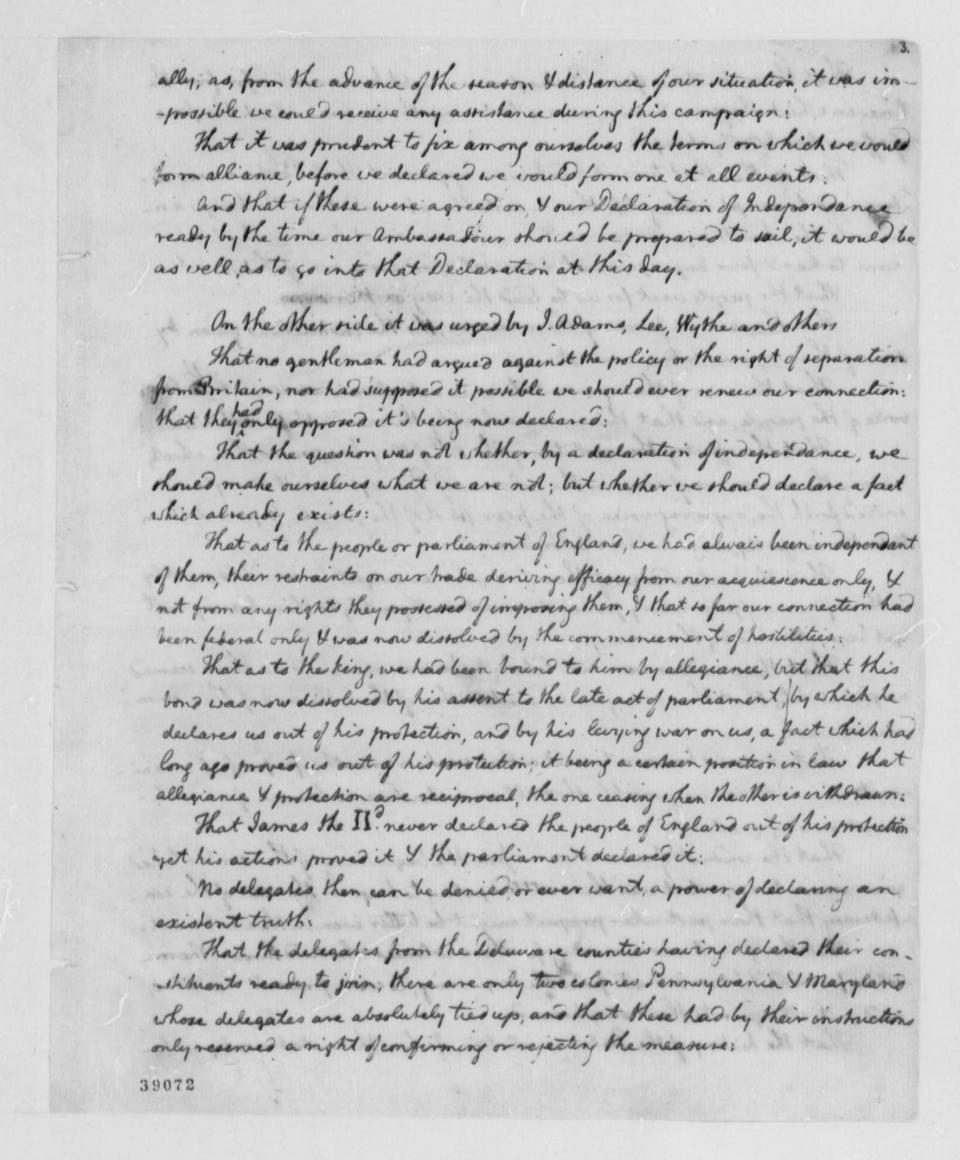 3.
ally, as, from the advance of the season & distance of our situation, it was im-
-possible we could receive any assistance during this campaign:
That it was prudent to fix among ourselves the terms on which we would
form alliance, before we declared we would form one at all events:
And that if these were agreed on, & our Declaration of Independance
ready by the time our Ambassadour should be prepared to sail, it would be
as well, as to go into that Declaration at this day.
On the other side it was urged by J. Adams, Lee, Wythe and others
That no gentleman had argued against the policy or the right of separation
from Britain, nor had supposed it possible we should ever renew our connection:
that they had only opposed it's being now declared:
That the question was not whether, by a declaration of independance, we
should make ourselves what we are not; but whether we should declare a fact
which already exists:
That as to the people or parliament of England, we had alwais been independant
of them, their restraints on our trade deriving efficacy from our acquiescence only, &
not from any rights they possessed of imposing them, & that so far our connection had
been federal only & was now dissolved by the commencement of hostilities:
That as to the king, we had been bound to him by allegiance, but that this
bond was now dissolved by his assent to the late act of parliament, by which he
declares us out of his protection, and by his levying war on us, a fact which had
long ago proved us out of his protection; it being a certain position in law that
allegiance & protection are reciprocal, the one ceasing when the other is withdrawn:
That James the IId. never declared the people of England out of his protection
yet his actions proved it & the parliament declared it:
No delegates then can be denied, or ever want, a power of declaring an
existent truth:
That the delegates from the Delaware counties having declared their con-
-stituents ready to join, there are only two colonies Pennsylvania & Maryland
whose delegates are absolutely tied up, and that these had by their instructions
only reserved a right of confirming or rejecting the measure:
39072